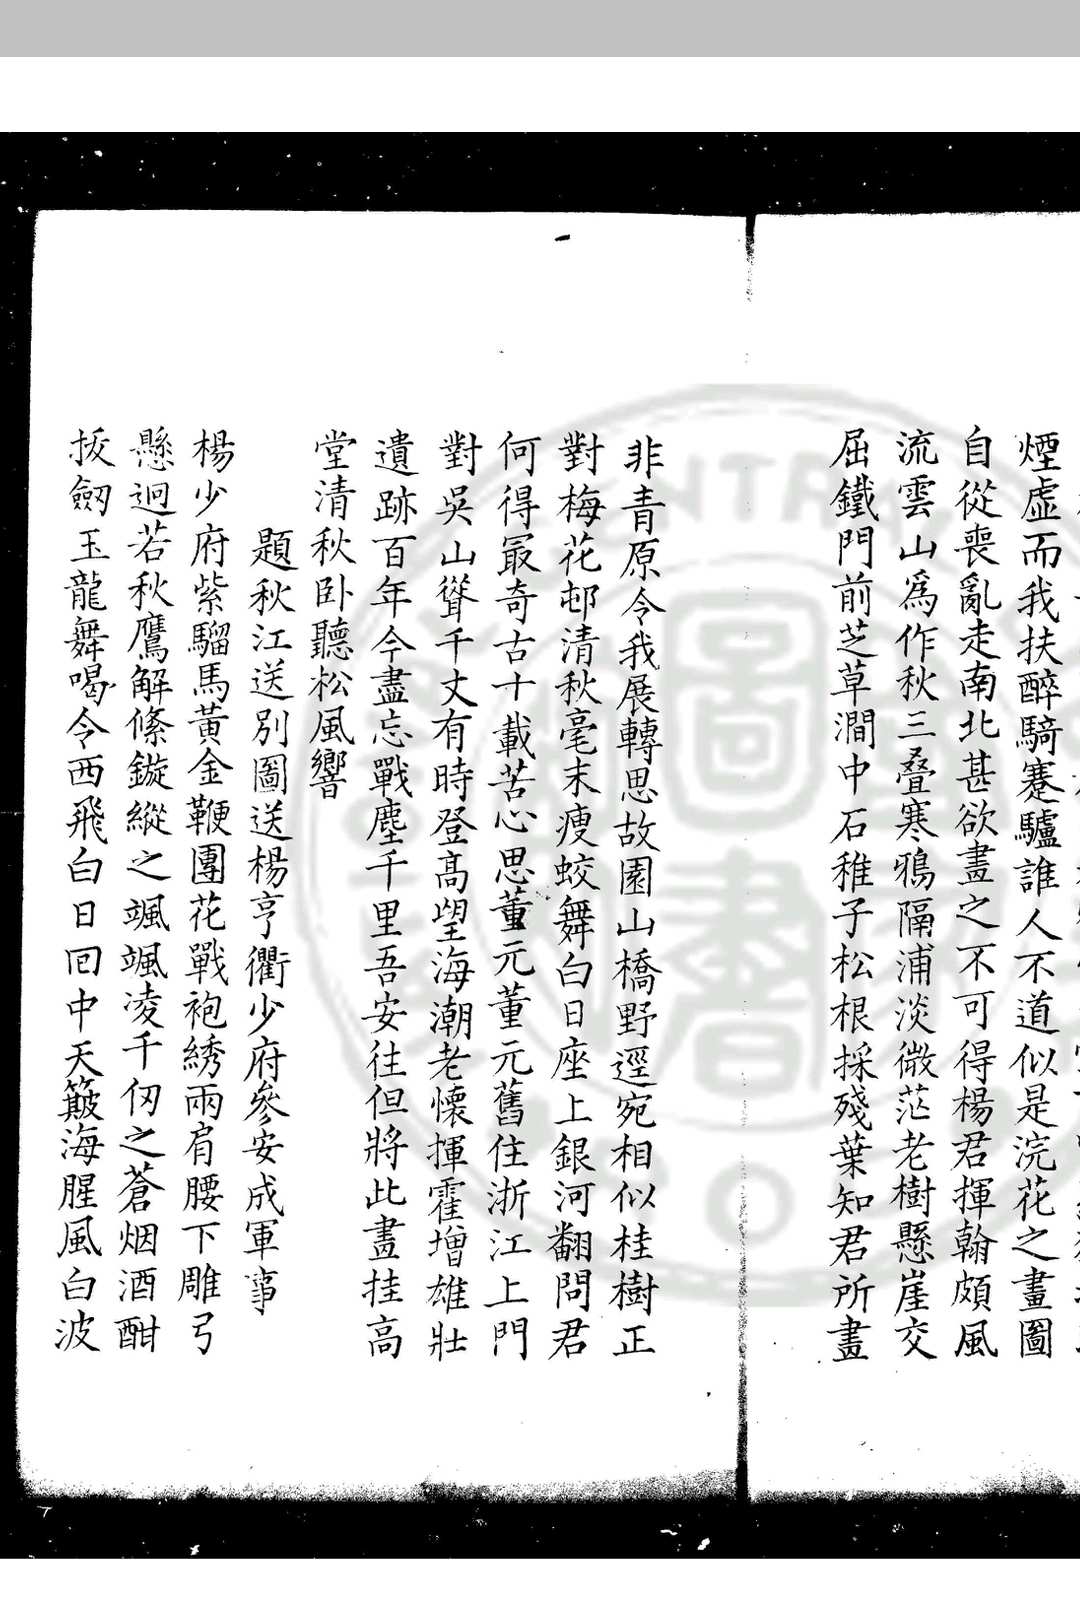 煙虛而我扶醉騎蹇驢誰人不道似是浣花之畫圖
自從喪亂走南北甚欲畫之不可得楊君揮翰頗風
流雲山爲作秋三叠寒鴉隔浦淡微茫老樹懸崖交
屈鐵門前芝草澗中石稚子松根採殘葉知君所畫
非青原令我展轉思故園山橋野逕宛相似桂樹正
對梅花邨清秋毫末瘦蛟舞白日座上銀河翻問君
何得冣奇古十載苦心思董元董元舊住浙江上門
對吳山聳千丈有時登高望海潮老懷揮霍增雄壯
遺跡百年今盡忘戰塵千里吾安往但將此畫挂高
堂清秋卧聽松風響
題秋江送別圖送楊亨衢少府參安成軍事
楊少府紫騮馬黃金鞭團花戰袍綉兩肩腰下雕弓
懸迥若秋鷹解絛鏇縱之颯颯凌千仞之蒼烟酒酣
拔劒玉龍舞喝令西飛白日回中天簸海腥風白波